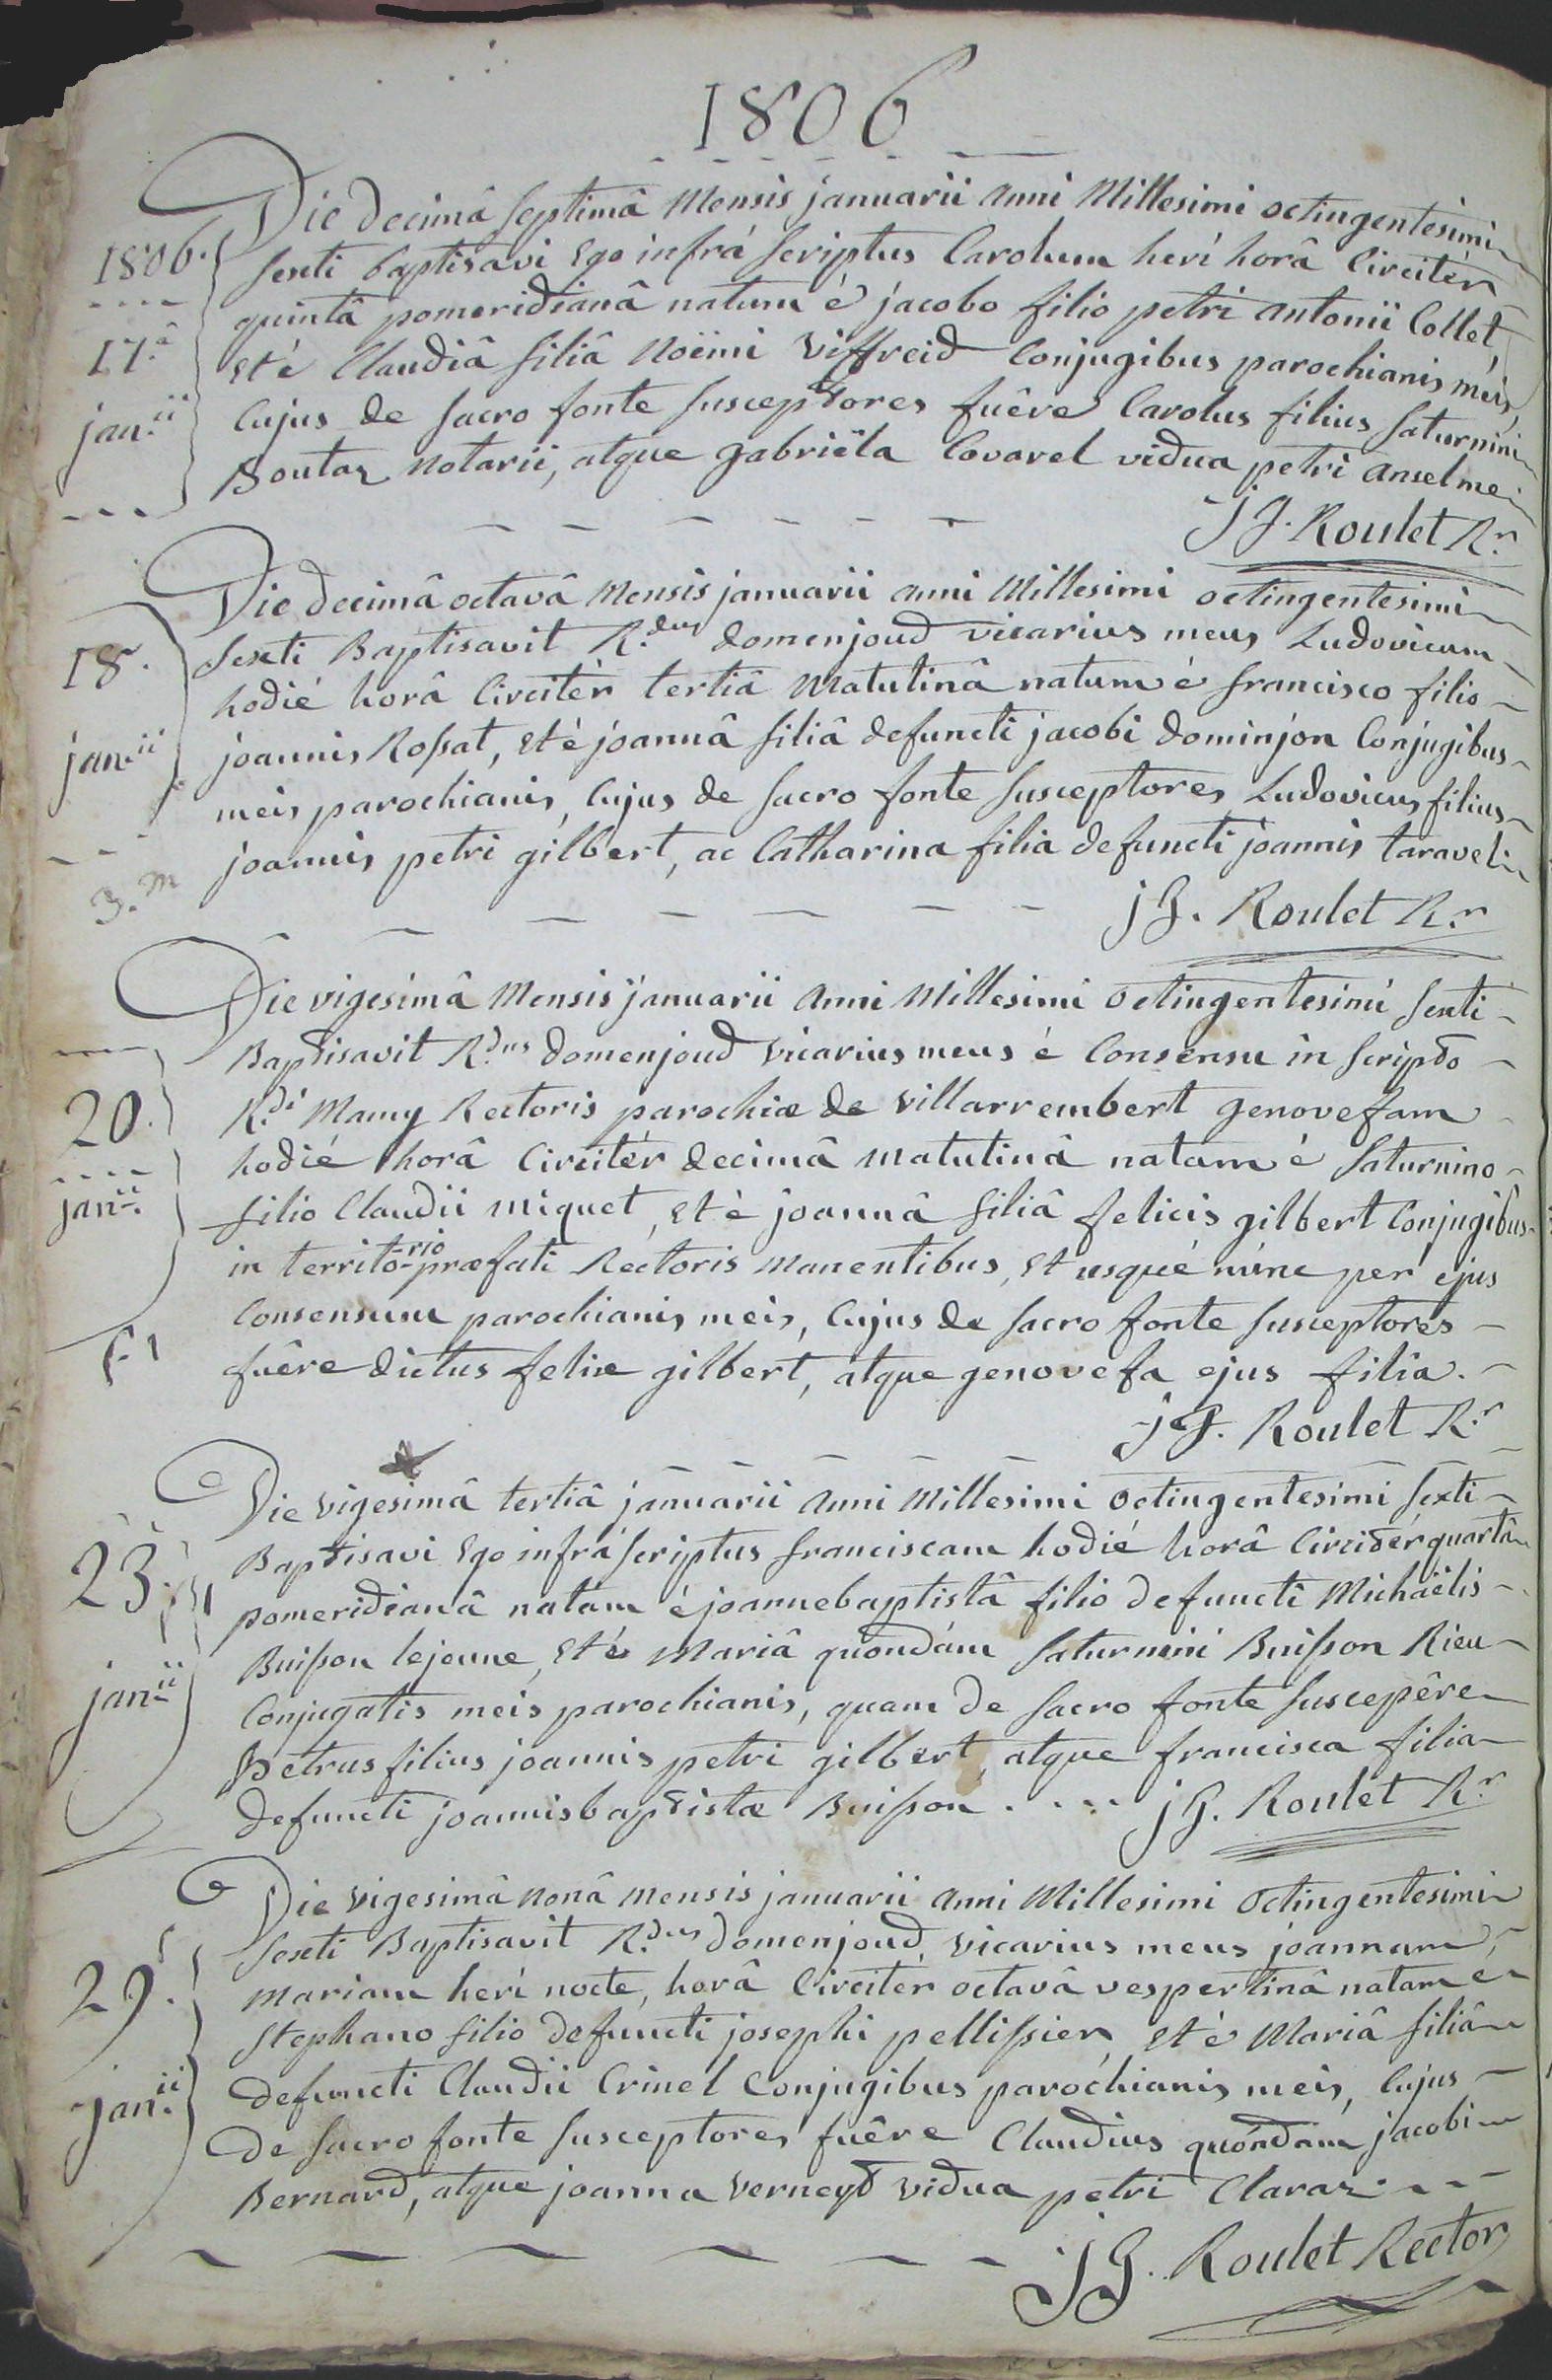 1806
Die decimâ septimâ mensis januarii anni millesimi octingentesimi
1806.
sexti baptisavi ego infrá scriptus Carolum herí horâ Circitér
quintâ pomeridianâ natum é jacobo filio petri antonii Collet,
17.â
et é Claudiâ filiâ Noëmi Viffreid Conjugibus parochianis meis,
jan.ii
Cujus de sacro fonte susceptores fuêre Carolus filius saturnini
Boutaz notarii, atque gabriéla Covarel vidua petri anselme
jG. Roulet R.r
Die decimâ octavâ mensis januarii anni millesimi octingentesimi
18.
sexti Baptisavit R.dus domenjoud vicarius meus Ludovicum
hodié horâ Circitér tertiâ matutinâ natum é francisco filio
jan.ii
joannis Rossat, et é joannâ filiâ defuncti jacobi dominjon Conjugibus
meis parochianis, Cujus de sacro fonte susceptores Ludovicus filius
joannis petri gilbert, ac Catharina filia defuncti joannis taravel
3.m
jG. Roulet R.r
Die vigesimâ mensis januarii anni millesimi octingentesimi sexti
Baptisavit R.dus domenjoud vicarius meus é Consensu in scripto
20.
R.di Mamy Rectoris parochiæ de villarrembert genovefam
hodié horâ Circitér decimâ matutinâ natam é saturnino
jan.ii
filio Claudii miquet, et é joannâ filiâ felicis gilbert Conjugibus
in territo-rio præfati Rectoris manentibus, et usqué núnc per ejus
Consensum parochianis meis, Cujus de sacro fonte susceptores
fuêre dictus felix gilbert, atque genovefa ejus filia.
jG. Roulet R.r
Die vigesimâ tertiâ januarii anni millesimi octingentesimi sexti
23.
Baptisavi ego infrá scriptus franciscam hodié horâ Circitér quartâ
pomeridianâ natam é joannebaptistâ filio defuncti Michaëlis
jan.ii
Buisson lejeune, et é Mariâ quondám saturnini Buisson Rieu
Conjugatis meis parochianis, quam de sacro fonte suscepêre
Petrus filius joannis petri gilbert, atque francisca filia
defuncti joannisbaptistæ Buisson . . . . jG. Roulet R.r
Die vigesimâ nonâ mensis januarii anni millesimi octingentesimi
sexti Baptisavit R.dus domenjoud, vicarius meus joannam,
29.
mariam herí nocte, horâ Circitér octavâ vespertinâ natam é
stephano filio defuncti josephi pellissier, et é Mariâ filiâ
jan.ii
defuncti Claudii Crinel Conjugibus paróchianis meis, Cujus
de sacro fonte susceptores fuêre Claudius quóndám jacobi
Bernard, atque joanna verneyd vidua petri Claraz.
jG. Roulet Rector